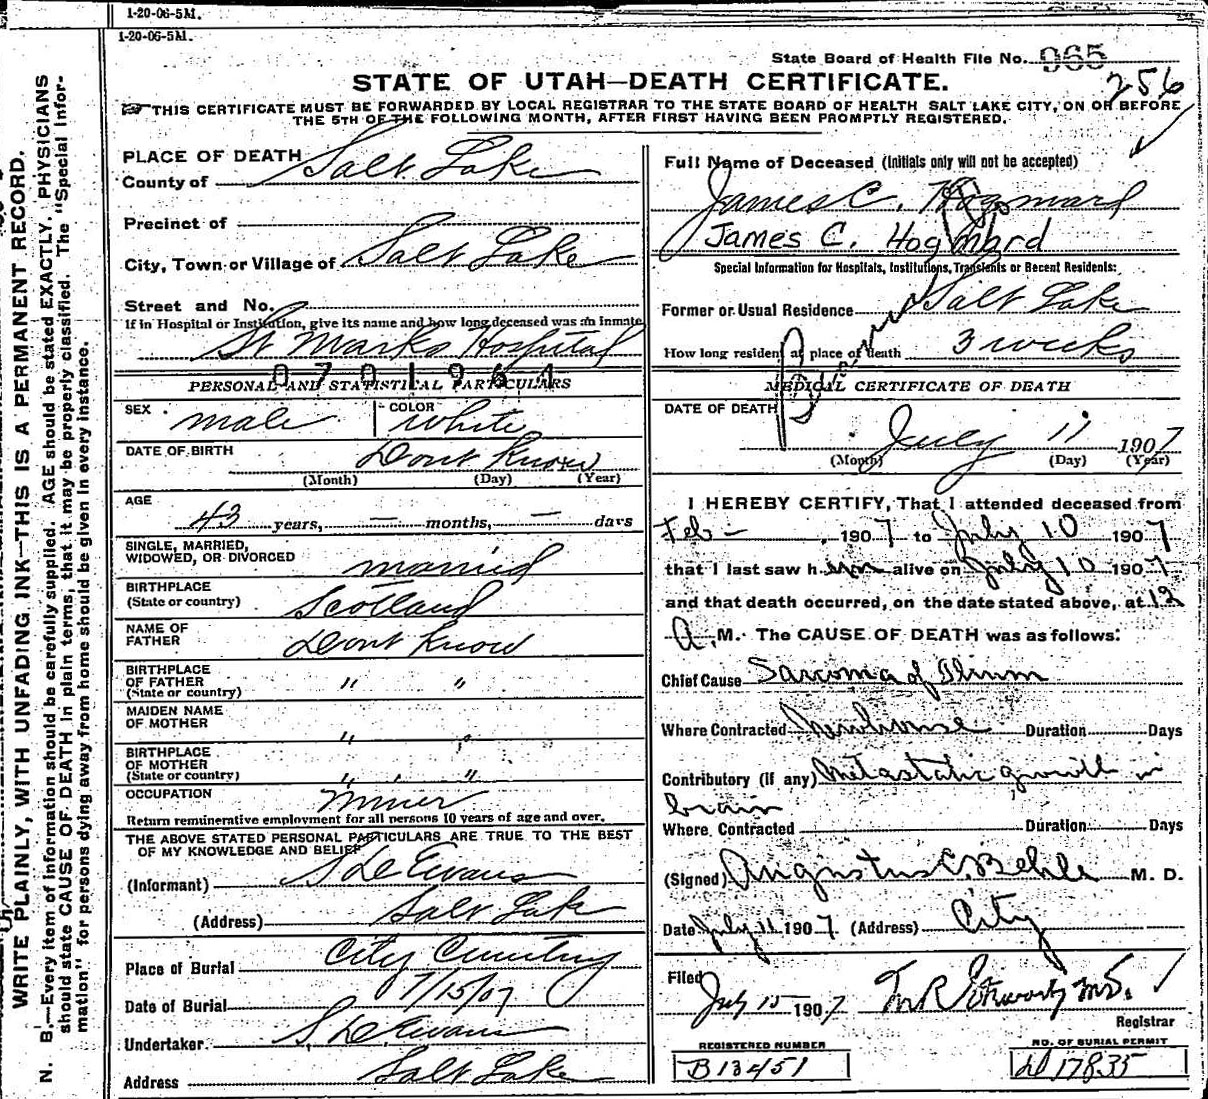 1-20-06-5M.
1-20-06-5M.
State Board of Health File No. 965
256
STATE OF UTAH—DEATH CERTIFICATE.
THIS CERTIFICATE MUST BE FORWARDED BY LOCAL REGISTRAR TO THE STATE BOARD OF HEALTH SALT LAKE CITY, ON OR BEFORE
THE 5TH OF THE FOLLOWING MONTH, AFTER FIRST HAVING BEEN PROMPTLY REGISTERED.
WRITE PLAINLY, WITH UNFADING INK—THIS IS A PERMANENT RECORD.
N. B.—Every item of information should be carefully supplied. AGE should be stated EXACTLY. PHYSICIANS
should state CAUSE OF DEATH in plain terms, that it may be properly classified. The "Special Infor-
mation" for persons dying away from home should be given in every instance.
PLACE OF DEATH
County of Salt Lake
Precinct of
City, Town or Village of Salt Lake
Street and No.
If in Hospital or Institution, give its name and how long deceased was an inmate
St Marks Hospital
0701964
PERSONAL AND STATISTICAL PARTICULARS
SEX male COLOR white
DATE OF BIRTH Dont Know
(Month) (Day) (Year)
AGE
43 years, — months, — days
SINGLE, MARRIED,
WIDOWED, OR DIVORCED married
BIRTHPLACE
(State or country) Scotland
NAME OF
FATHER Dont Know
BIRTHPLACE
OF FATHER
(State or country) " "
MAIDEN NAME
OF MOTHER
" "
BIRTHPLACE
OF MOTHER
(State or country) " "
OCCUPATION Miner
Return remunerative employment for all persons 10 years of age and over.
THE ABOVE STATED PERSONAL PARTICULARS ARE TRUE TO THE BEST
OF MY KNOWLEDGE AND BELIEF
(Informant) S D Evans
(Address) Salt Lake
Place of Burial City Cemetery
Date of Burial 7/15/07
Undertaker. S. D. Evans
Address Salt Lake
Full Name of Deceased (Initials only will not be accepted)
James C. Hogmard
James C. Hogmard
Special Information for Hospitals, Institutions, Transients or Recent Residents:
Former or Usual Residence Salt Lake
How long resident at place of death 3 weeks
MEDICAL CERTIFICATE OF DEATH
DATE OF DEATH
July 11 1907
(Month) (Day) (Year)
I HEREBY CERTIFY, That I attended deceased from
Feb — , 1907 to July 10 1907
that I last saw him alive on July 10 1907
and that death occurred, on the date stated above, at 12
A. M. The CAUSE OF DEATH was as follows:
Chief Cause Sarcoma of Ilium
Where Contracted Newhouse Duration Days
Contributory (if any) Metastatic growth in
brain
Where Contracted Duration Days
(Signed) Augustus C. Behle M. D.
Date July 11 1907 (Address) City
Filed
July 15 1907
Registrar
REGISTERED NUMBER
B13451
NO. OF BURIAL PERMIT
17835